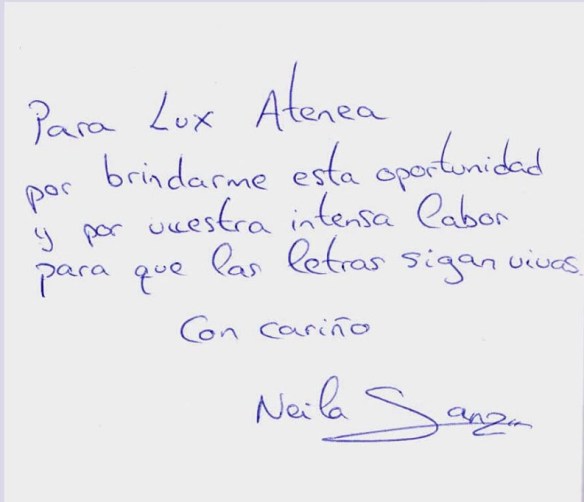 Para Lux Atenea
por brindarme esta oportunidad
y por vuestra intensa labor
para que las letras sigan vivas.
Con cariño
Neila Sanz